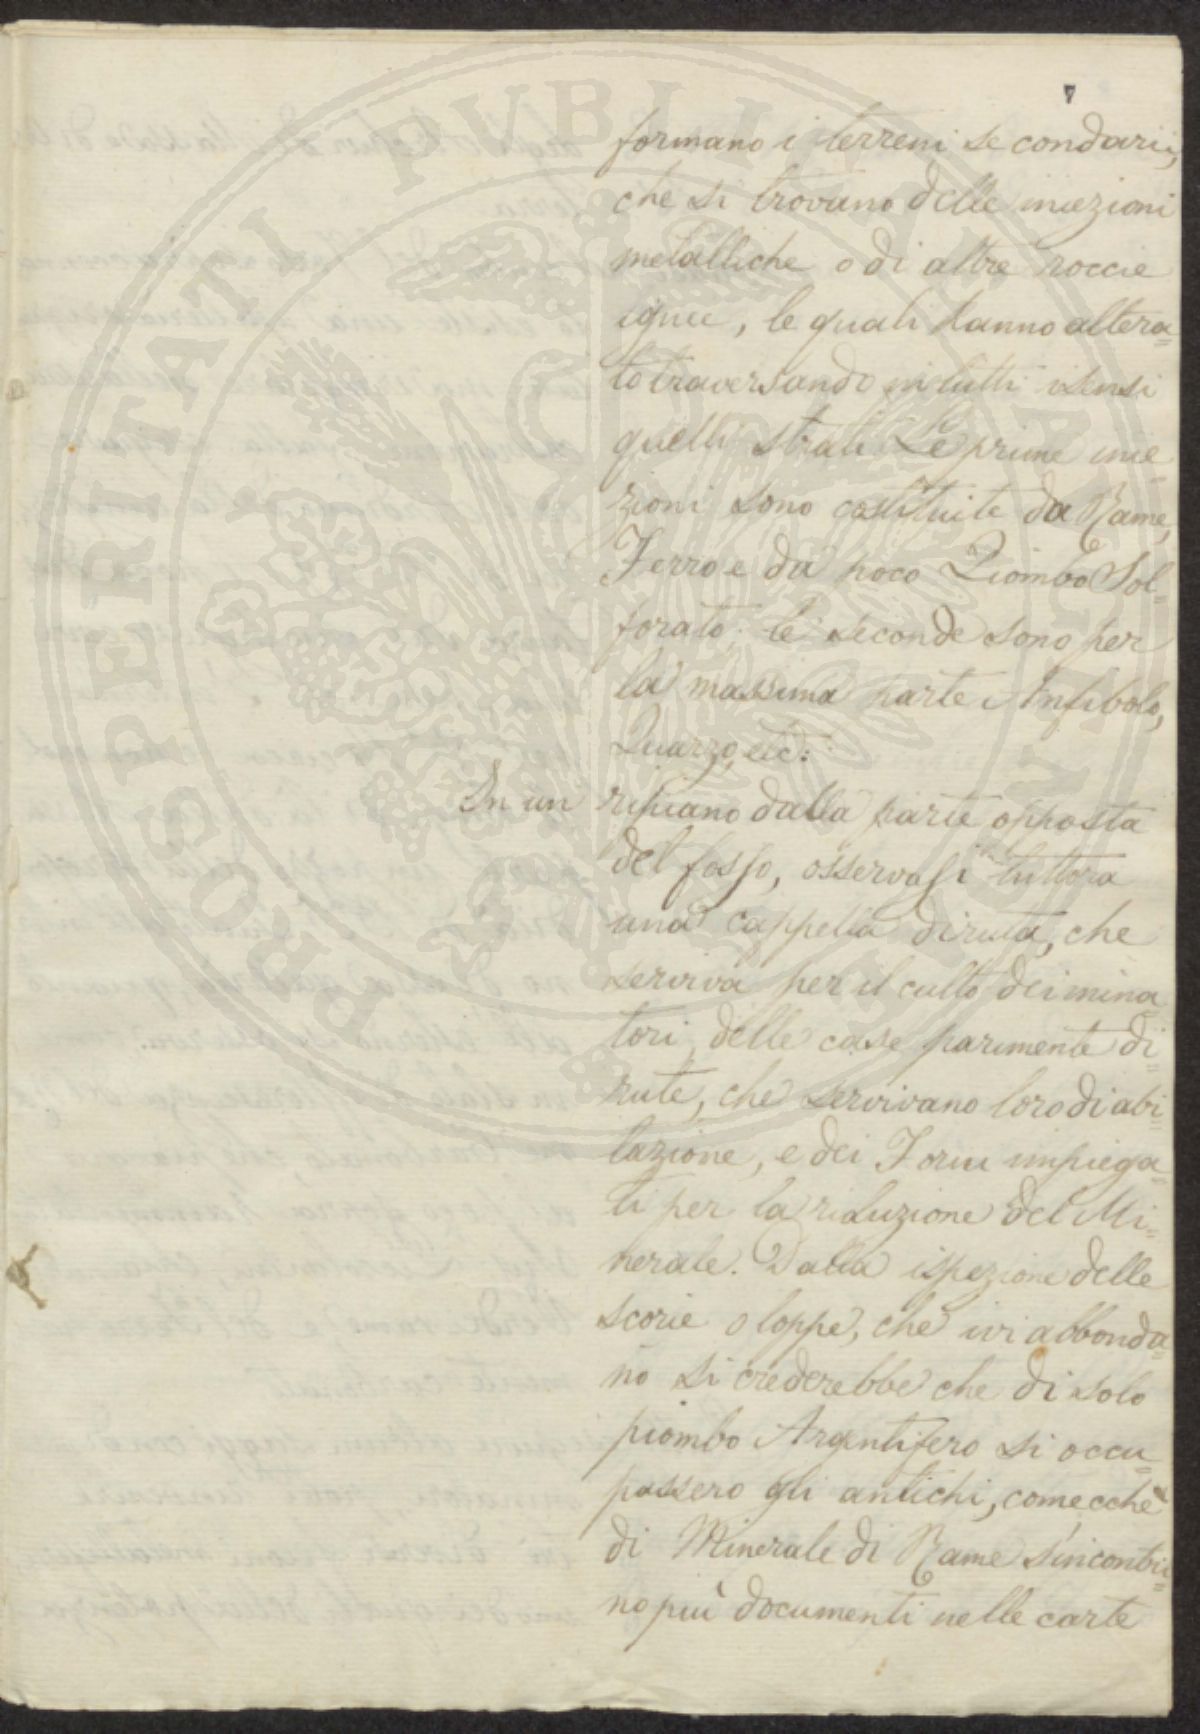 7
formano i terreni secondarii,
che si trovano delle iniezioni
metalliche o di altre roccie
ignee, le quali hanno altera=
to traversando in tutti i sensi
quelli strati. Le prime inie=
zioni sono costituite da Rame,
Ferro e da poco Piombo Sol=
forato; le seconde sono per
la massima parte Anfibolo,
Quarzo, etc:
In un ripiano dalla parte opposta
del fosso, osservasi tuttora
una cappella diruta, che
serviva per il culto dei mina=
tori, delle case parimente di=
rute, che servivano loro di abi=
tazione, e dei Forni impiega=
ti per la riduzione del Mi=
nerale. Dalla ispezione delle
scorie o loppe, che ivi abbonda=
no si crederebbe che di solo
piombo Argentifero si occu=
passero gli antichi, comecchè
di Minerale di Rame s'incontri=
no più documenti nelle carte
PROSPERITATI PUBLICAE AUGENDAE